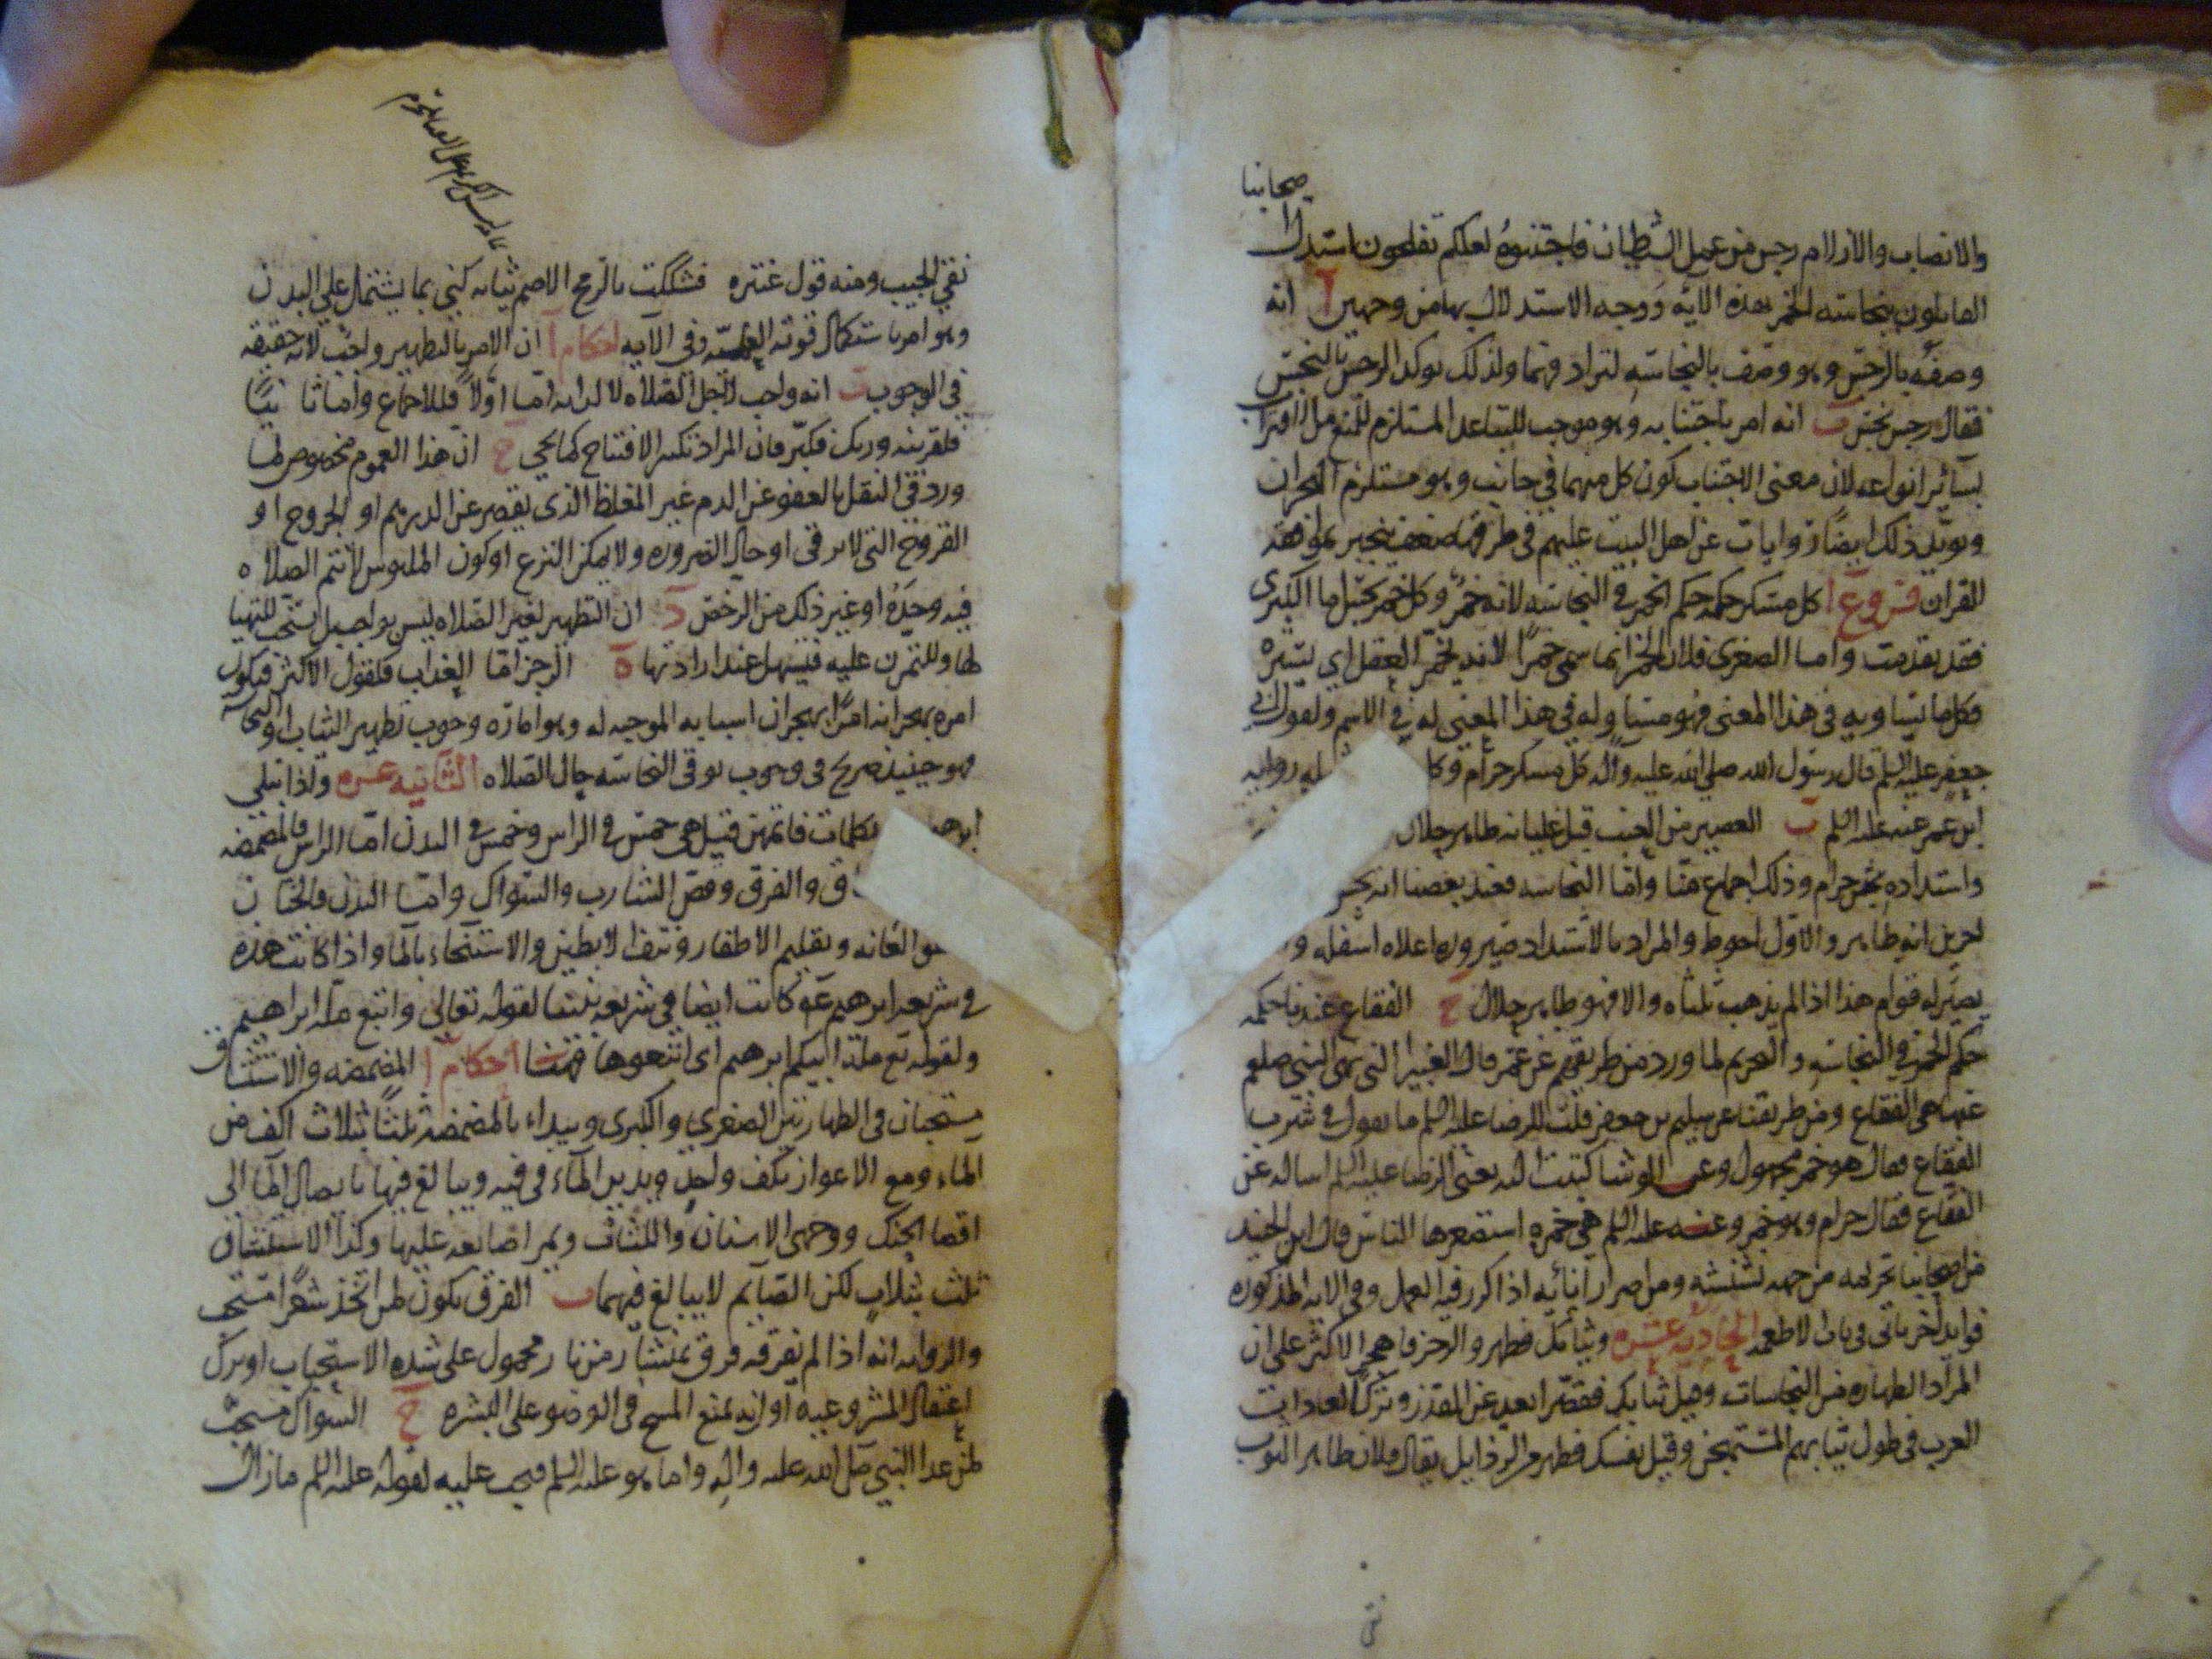 صحابنا
والانصاب والازلام رجس من عمل الشيطان فاجتنبوه لعلكم تفلحون استدل
القايلون بنجاسه الخمر بهذه الايه ووجه الاستدلال بها من وجهين آ انه
وصفه بالرجس وهو وصف بالنجاسه لترادفهما ولذلك يوكد الرجس بالنجس
فقال رجس نجس ب انه امر باجتنابه وهو موجب للتباعد المستلزم للمنع من الاقتراب
بسائر انواعه لان معنى الاجتناب كون كل منهما في جانب وهو مستلزم الهجران
ويويد ذلك ايضا روايات عن اهل البيت عليهم في طرقها ضعف ينجبر بموافقه
القران فروع ا كل مسكر حكمه حكم الخمر في النجاسه لانه خمر وكل خمر نجس اما الكبرى
فقد تقدمت واما الصغرى فلان الخمر انما سمي خمرا لانه يخمر العقل اي يستره
فكل ما يساويه في هذا المعنى فهو مساو له في هذا المعنى له في الاسم ولقول ابي
جعفر عليه السلم قال رسول الله صلى الله عليه واله كل مسكر حرام وكل له روايه
ابن عمر عنه عليه السلم ب العصير من العنب قبل غليانه طاهر حلال
واشتداده نجس حرام وذلك اجماع منا واما النجاسه فعند بعضنا انه نجس
اخرين انه طاهر والاول احوط والمراد بالاشتداد صيروره اعلاه اسفله و
يصير له قوام هذا اذا لم يذهب ثلثاه والا فهو طاهر حلال ج الفقاع عندنا حكمه
حكم الخمر في النجاسه والتحريم لما ورد من طريقهم عن عمر قال الغبيرا التي نهى النبي صلعم
عنها هي الفقاع ومن طريقنا عن سليم بن جعفر قلت للرضا عليه السلم ما تقول في شرب
الفقاع فقال هو خمر مجهول وعن الوشا كتبت اليه يعني الرضا عليه السلم اساله عن
الفقاع فقال حرام وهو خمر وعنه عليه السلم هي خمره استصغرها الناس قال ابن الجنيد
من اصحابنا تحريمه من جهه نشيشه ومن اصرار انائه اذا كرر فيه العمل وفي الايه المذكوره
فوايد اخر ياتي في باب الاطعمه الحاديه عشره وثيابك فطهر والرجز فاهجر الاكثر على ان
المراد الطهاره من النجاسات وقيل ثيابك فقصر ابعد عن المقذر وترك العادات
العرب في طول ثيابهم المستهجن وقيل نفسك فطهر من الرذايل يقال فلان طاهر الثوب
نقي الجيب ومنه قول عنتره فشككت بالرمح الاصم ثيابه كنى بما يشتمل على البدن
وهو امر باستكمال قوته العلميه وفي الايه احكام آ ان الامر بالتطهير واجب لانه حقيقه
في الوجوب ب انه واجب لاجل الصلاه لا لذاته اما اولا فللاجماع واما ثانيا
فلقرينه وربك فكبر فان المراد تكبير الافتتاح كما يجي ج ان هذا العموم مخصوص بما
ورد في النقل بالعفو عن الدم غير المغلظ الذي يقصر عن الدرهم او الجروح او
القروح التي لا ترقى او حال الضروره ولا يمكن النزع او كون الملبوس لا تتم الصلاه
فيه وحده او غير ذلك من الرخص د ان التطهير لغير الصلاه ليس بواجب بل يستحب للتهيا
لها وللتمرن عليه فيسهل عند ارادتها ه الرجز اما العذاب فلقول الاكثر فيكون
امره بهجرانه امرا بهجران اسبابه الموجبه له وهو اماره وجوب تطهير الثياب او النجاسه
فهو حينئذ صريح في وجوب توقي النجاسه حال الصلاه الثانيه عشره واذ ابتلى
ابرهيم بكلمات فاتمهن قيل هي خمس في الراس وخمس في البدن اما الراس فالمضمضه
ق والفرق وقص الشارب والسواك واما البدن فالختان
العانه وتقليم الاظفار ونتف الابطين والاستنجاء بالما واذا كانت هذه
في شريعه ابرهيم ع كانت ايضا في شريعه نبينا لقوله تعالى واتبع مله ابراهيم
ولقوله تع مله ابيكم ابرهيم اى اتبعوها فهنا احكام آ المضمضه والاستنشاق
مستحبان في الطهارتين الصغرى والكبرى ويبداء بالمضمضه ثلثا بثلاث اكف من
الماء ومع الاعواز بكف واحد ويدير الماء في فيه ويبالغ فيها بايصال الما الى
اقصا الحنك ووجهى الاسنان واللثات ويمر اصابعه عليها وكذا الاستنشاق
ثلث بثلاث لكن الصايم لا يبالغ فيهما ب الفرق يكون لمن اتخذ شعرا مستحب
والروايه انه اذا لم يفرقه فرق بمنشار من نار محمول على شده الاستحباب او ترك
اعتقاد المشروعيه او انه يمنع المسح في الوضو على البشره ج السواك مستحب
لمن عدا النبي صلى الله عليه واله واما هو عليه السلم فيجب عليه لقوله عليه السلم ما زال